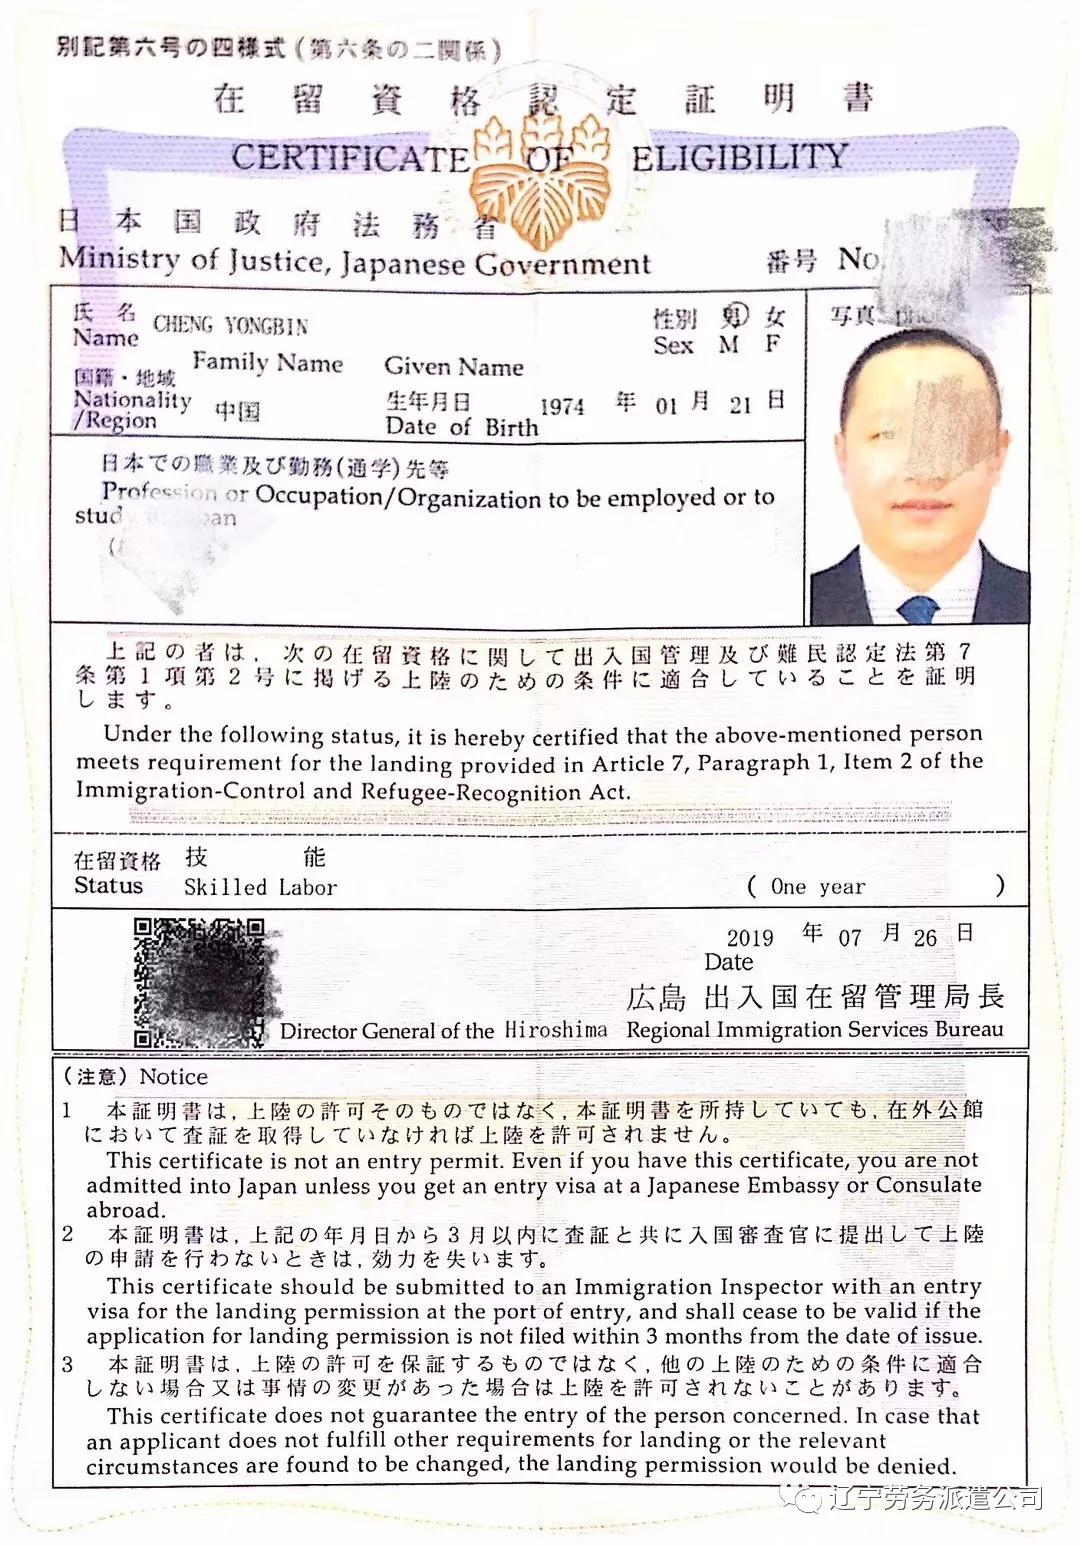 別記第六号の四様式(第六条の二関係)
在留資格認定証明書
CERTIFICATE OF ELIGIBILITY
日本国政府法務省
Ministry of Justice, Japanese Government 番号 No.
氏名 性別 男 女 写真 photo
Name CHENG YONGBIN Sex M F
Family Name Given Name
国籍・地域 生年月日 1974 年 01 月 21 日
Nationality 中国 Date of Birth
/Region
日本での職業及び勤務(通学)先等
Profession or Occupation/Organization to be employed or to
study in Japan
上記の者は,次の在留資格に関して出入国管理及び難民認定法第7
条第1項第2号に掲げる上陸のための条件に適合していることを証明
します。
Under the following status, it is hereby certified that the above-mentioned person
meets requirement for the landing provided in Article 7, Paragraph 1, Item 2 of the
Immigration-Control and Refugee-Recognition Act.
在留資格 技能
Status Skilled Labor ( One year )
2019 年 07 月 26 日
Date
広島 出入国在留管理局長
Director General of the Hiroshima Regional Immigration Services Bureau
(注意) Notice
1 本証明書は,上陸の許可そのものではなく,本証明書を所持していても,在外公館
において査証を取得していなければ上陸を許可されません。
This certificate is not an entry permit. Even if you have this certificate, you are not
admitted into Japan unless you get an entry visa at a Japanese Embassy or Consulate
abroad.
2 本証明書は,上記の年月日から3月以内に査証と共に入国審査官に提出して上陸
の申請を行わないときは,効力を失います。
This certificate should be submitted to an Immigration Inspector with an entry
visa for the landing permission at the port of entry, and shall cease to be valid if the
application for landing permission is not filed within 3 months from the date of issue.
3 本証明書は,上陸の許可を保証するものではなく,他の上陸のための条件に適合
しない場合又は事情の変更があった場合は上陸を許可されないことがあります。
This certificate does not guarantee the entry of the person concerned. In case that
an applicant does not fulfill other requirements for landing or the relevant
circumstances are found to be changed, the landing permission would be denied.
辽宁劳务派遣公司